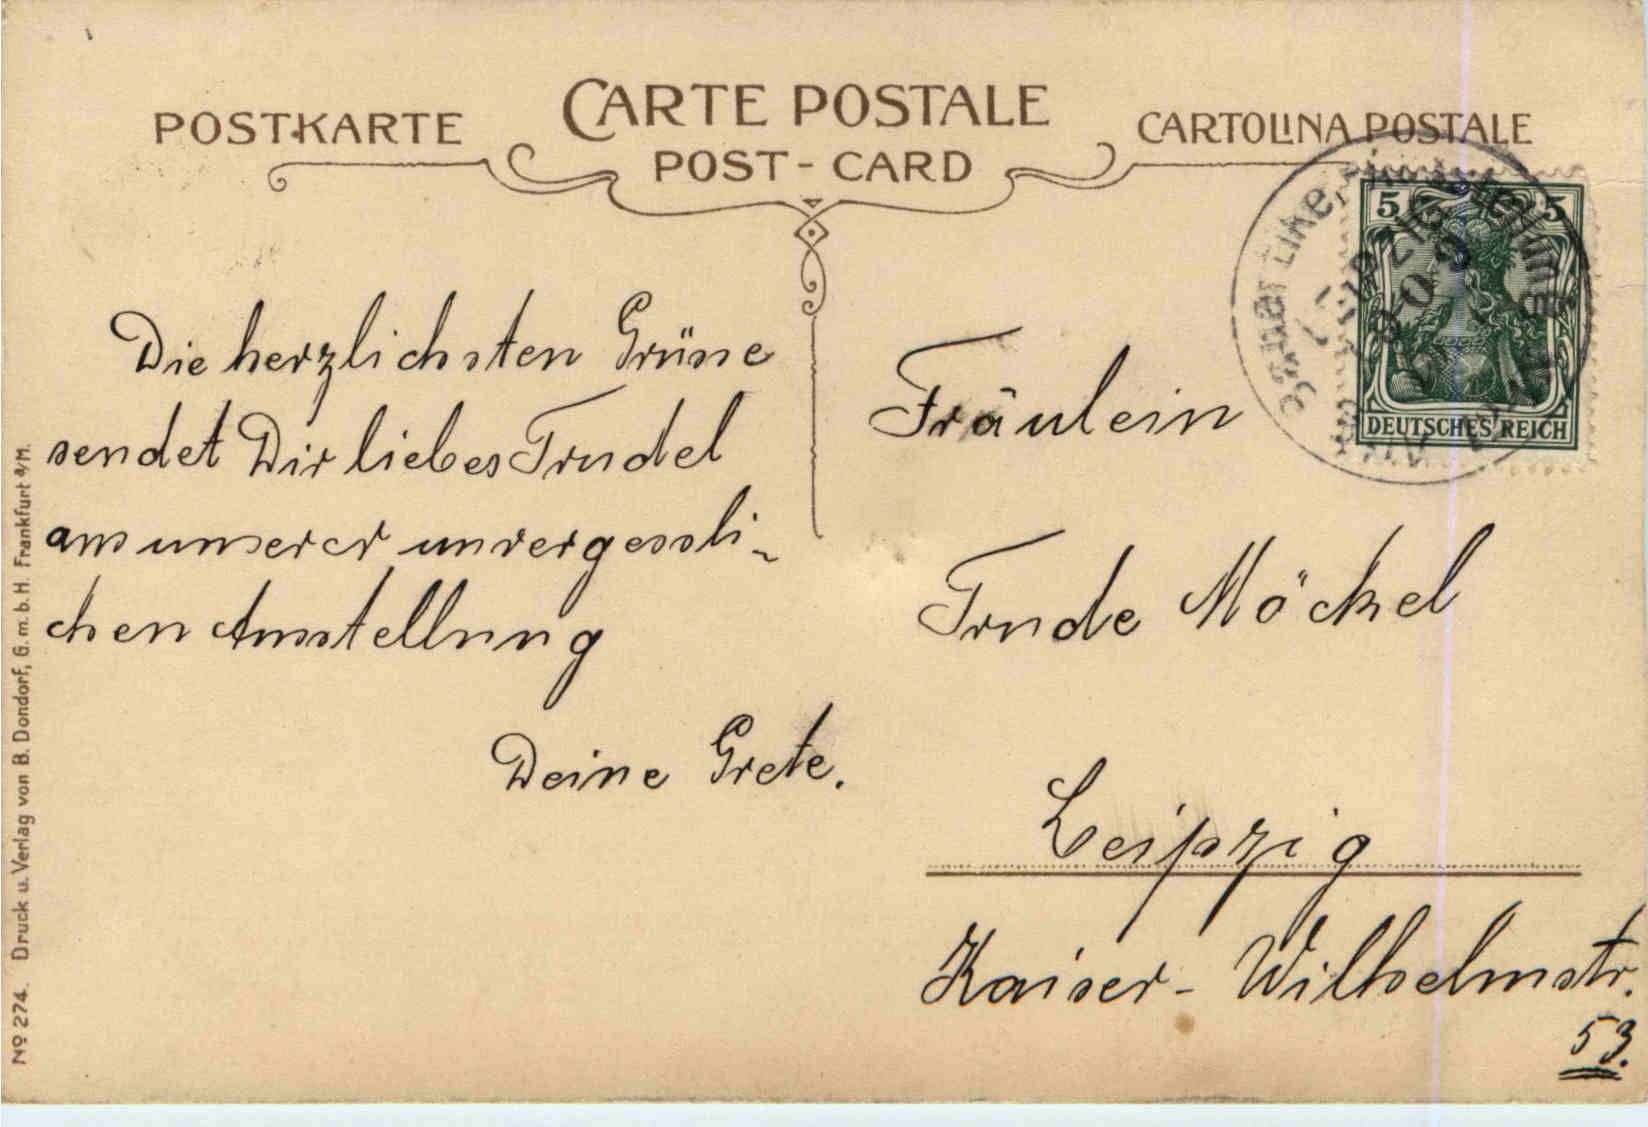 POSTKARTE
CARTE POSTALE
POST-CARD
CARTOLINA POSTALE
5 5
DEUTSCHES REICH
LEIPZIG
Die herzlichsten Grüsse
sendet Dir liebes Trudel
aus unserer unvergessli-
chen Ausstellung
Deine Grete.
Fräulein
Trude Möckel
Leipzig
Kaiser-Wilhelmstr.
53.
No 274. Druck u. Verlag von B. Dondorf, G.m.b.H. Frankfurt a/M.